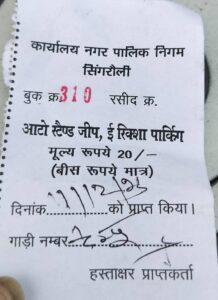 कार्यालय नगर पालिक निगम
सिंगरौली
बुक क्र. 310 रसीद क्र.
आटो स्टैण्ड जीप, ई रिक्शा पार्किंग
मूल्य रूपये 20/-
(बीस रूपये मात्र)
दिनांक को प्राप्त किया।
गाड़ी नम्बर
हस्ताक्षर प्राप्तकर्ता